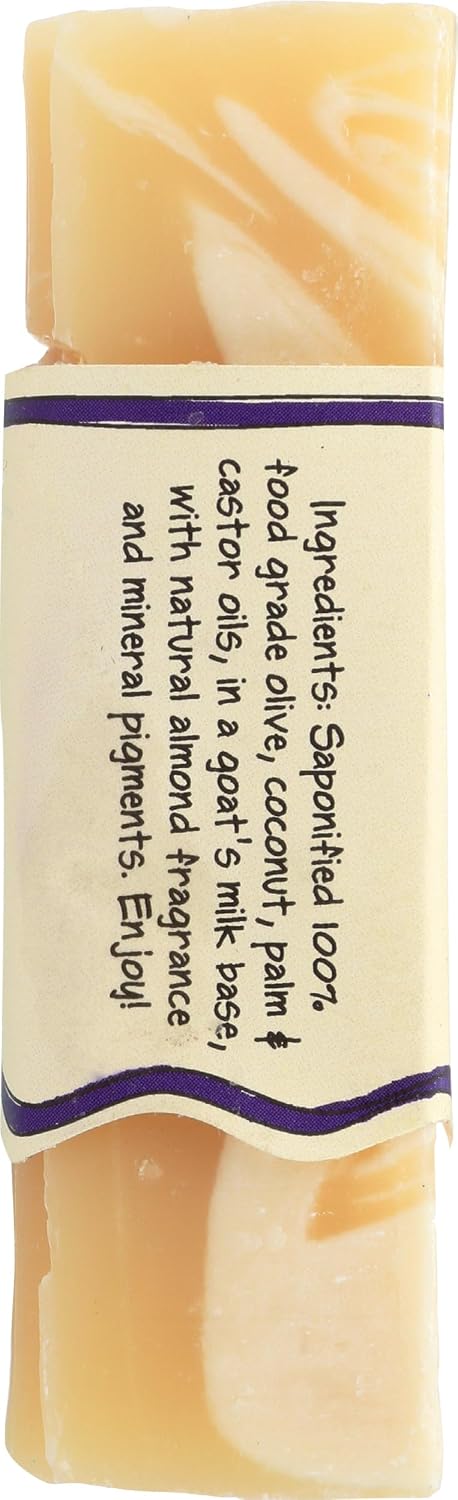 Ingredients: Saponified 100%
food grade olive, coconut, palm &
castor oils, in a goat's milk base,
with natural almond fragrance
and mineral pigments. Enjoy!